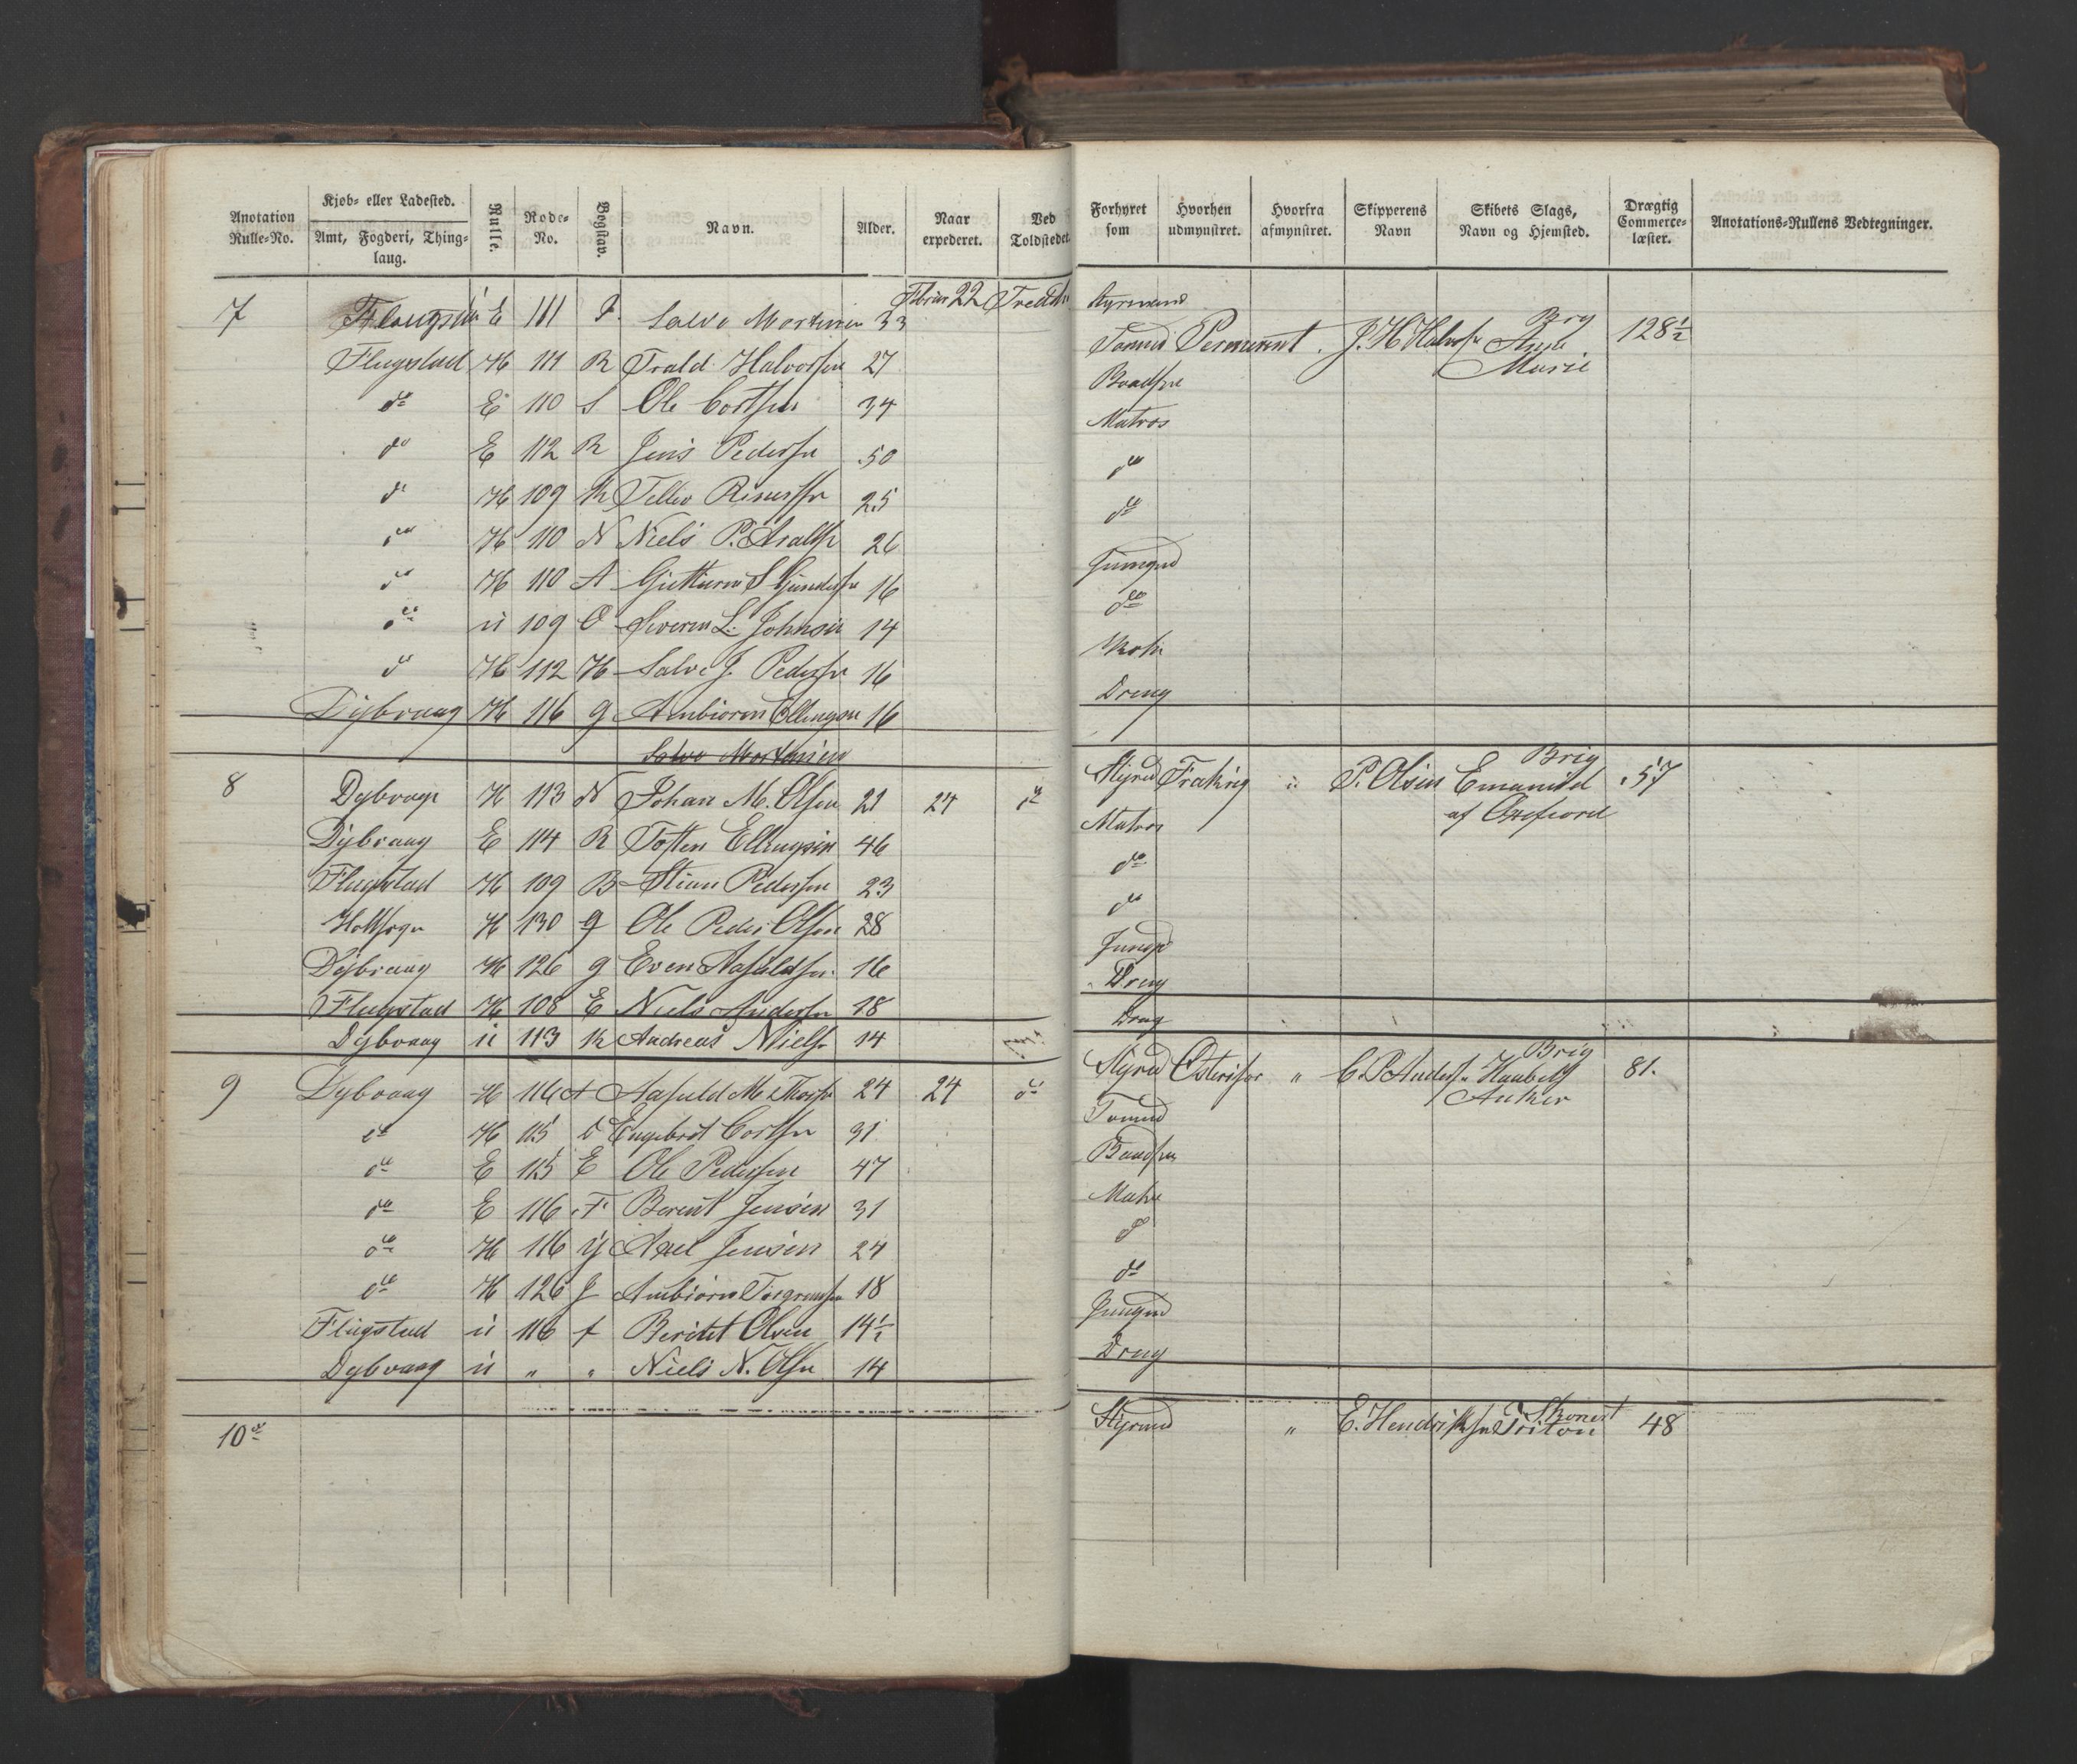 Anotation Rulle-No. Kjøb- eller Ladested. Amt, Fogderi, Thinglaug. Rulle. Rode-No. Bogstav. Navn. Alder. Naar expederet. Ved Toldstedet. Forhyret som Hvorhen udmynstret. Hvorfra afmynstret. Skipperens Navn Skibets Slags, Navn og Hjemsted. Drægtig Commerce-læster. Anotations-Rullens Vedtegninger.
7 E 111 Salve Mortensen 33 22 Styrmand
Flugstad H 111 R Trald Halvorsen 27 Tømmd J. H. Brig Marie 128½
do E 110 S Ole Cortsen 34 Baadsm
do E 112 R Jens Pedersen 50 Matros
do H 109 Tellev 25 do
do H 110 N Niels P. 26 do
do H 110 A S Gundersen 16 Jungmd
do u 109 O Severin L. Johnsen 14 do
do H 112 H Salve J. Pedersen 16 Kok
Dybvaag H 116 g Anbiørn Ellingsen 16 Dreng
Salve Mortensen
8 Dybvaag H 113 N Johan M. Olsen 21 24 do Styrmd " P. Olsen Brig Emanuel af 57
Dybvaag E 114 R Tosten Ellingsen 46 Matros
Flugstad H 109 B Stian Pedersen 23 do
Holtsogn H 130 g Ole Peder Olsen 28 do
Dybvaag H 126 g Even Aasuldsen 16 Jungmd
Flugstad H 108 E Niels Andersen 18 Dreng
Dybvaag u 113 Andreas Nielsen 14 Dreng
9 Dybvaag H 116 A Aasuld M. 24 24 do Styrmd Østerisøer " C. P. Anders. Brig Haabets Anker 81.
do H 115 Engebret Cortsen 31 Tømmd
do E 115 E Ole Pedersen 47 Baadsm
do E 116 F Berent Jensen 31 Matr
do H 116 Axel Jensen 24 do
do H 126 J Anbiørn 18 do
Flugstad u 116 f Olsen 14½ Jungmd
Dybvaag u " " Niels N. Olsen 14 Dreng
10 Styrmd " E. Hendriksen Skonnert Triton 48